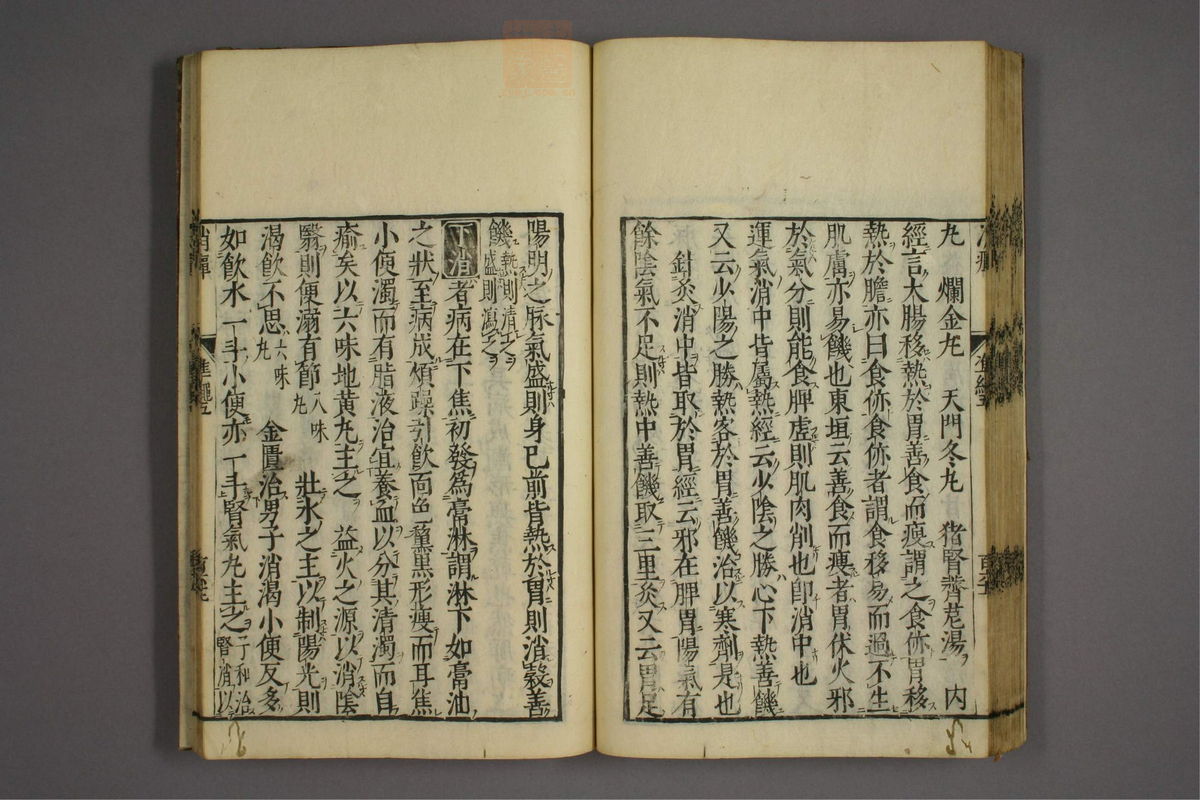 丸　爛金丸　天門冬丸　猪腎薺苨湯　內
經言大腸移熱於胃善食而瘦謂之食㑊胃移
熱於膽亦曰食㑊食㑊者謂食移易而過不生
肌膚亦易饑也東垣云善食而瘦者胃伏火邪
於氣分則能食脾虛則肌肉削也卽消中也
運氣消中皆屬熱經云少陰之勝心下熱善饑
又云少陽之勝熱客於胃善饑治以寒劑是也
針灸消中皆取於胃經云邪在脾胃陽氣有
餘陰氣不足則熱中善饑取三里灸又云胃足
陽明之脉氣盛則身已前皆熱於胃則消穀善
饑熱則清之盛則瀉之
下消者病在下焦初發爲膏淋謂淋下如膏油
之狀至病成煩躁引飲面色黧黑形瘦而耳焦
小便濁而有脂液治宜養血以分其清濁而自
瘉矣以六味地黄丸主之　益火之源以消陰
翳則便溺有節八味丸　壯水之主以制陽光則
渴飲不思六味丸　金匱治男子消渴小便反多
如飲水一斗小便亦一斗腎氣丸主之子和治腎消以
消癉
準繩五